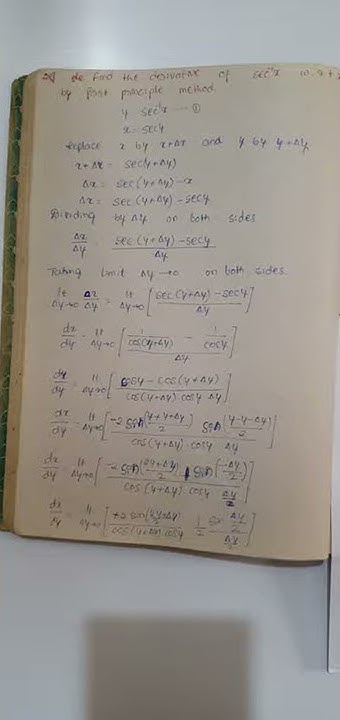 find the derivative of sec⁻¹x w.r.t
by first principle method.
y sec⁻¹x ---- ①
x = secy
replace x by x+Δx and y by y+Δy
x+Δx = sec(y+Δy)
Δx = sec(y+Δy) -x
Δx = sec(y+Δy) - secy
Dividing by Δy on both sides
Δx/Δy = sec(y+Δy) - secy / Δy
Taking limit Δy→0 on both sides.
lt Δy→0 Δx/Δy = lt Δy→0 [sec(y+Δy) - secy / Δy]
dx/dy = lt Δy→0 [1/cos(y+Δy) - 1/cosy / Δy]
dx/dy = lt Δy→0 [cosy - cos(y+Δy) / cos(y+Δy) cosy Δy]
dx/dy = lt Δy→0 [-2 sin(y+y+Δy / 2) sin(y-y-Δy / 2) / cos(y+Δy) . cosy Δy]
dx/dy = lt Δy→0 [-2 sin(2y+Δy / 2) sin(-Δy / 2) / cos(y+Δy) cosy Δy/2]
dx/dy = lt Δy→0 [+2 sin(2y+Δy / 2) / cos(y+Δy) cosy 1/2 sin Δy/2 / Δy/2]